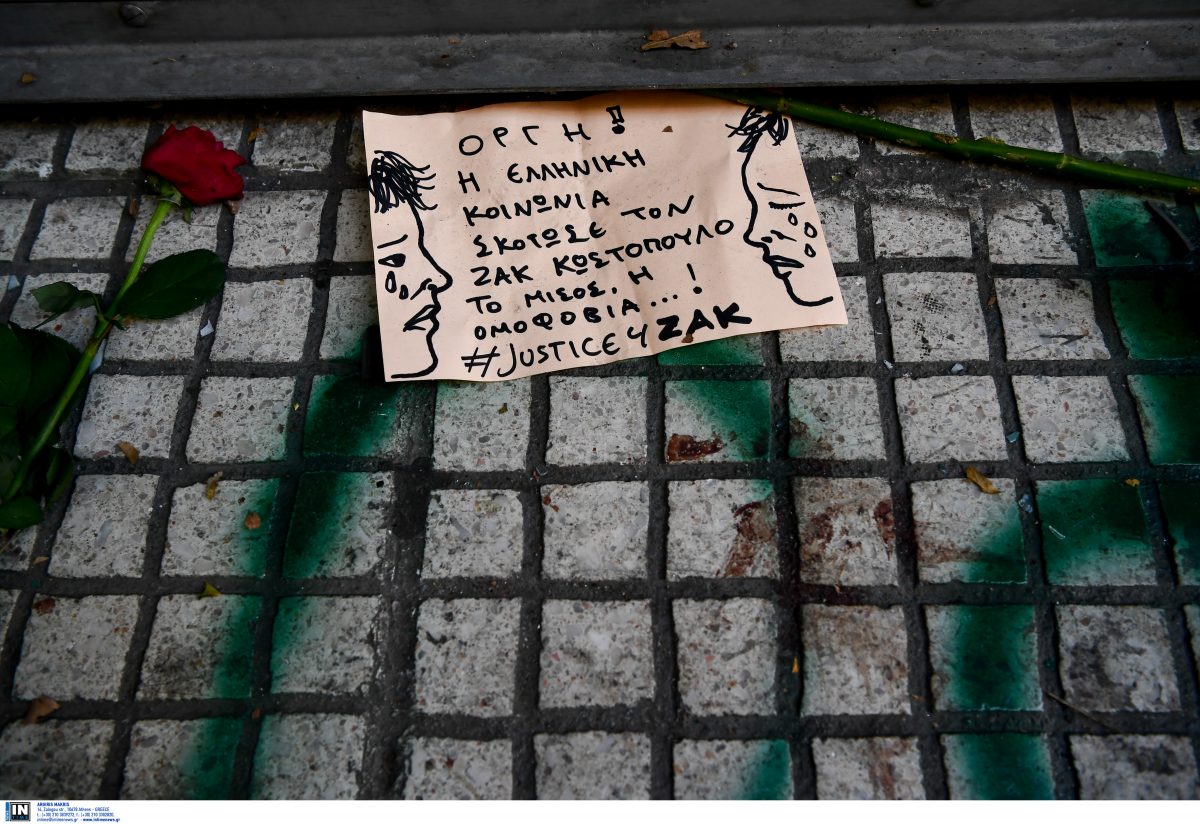 ΟΡΓΗ!
Η ΕΛΛΗΝΙΚΗ
ΚΟΙΝΩΝΙΑ
ΣΚΟΤΩΣΕ ΤΟΝ
ΖΑΚ ΚΩΣΤΟΠΟΥΛΟ
ΤΟ ΜΙΣΟΣ, Η
ΟΜΟΦΟΒΙΑ...!
#JUSTICE4ZAK
IN
ARGIRIS MAKRIS